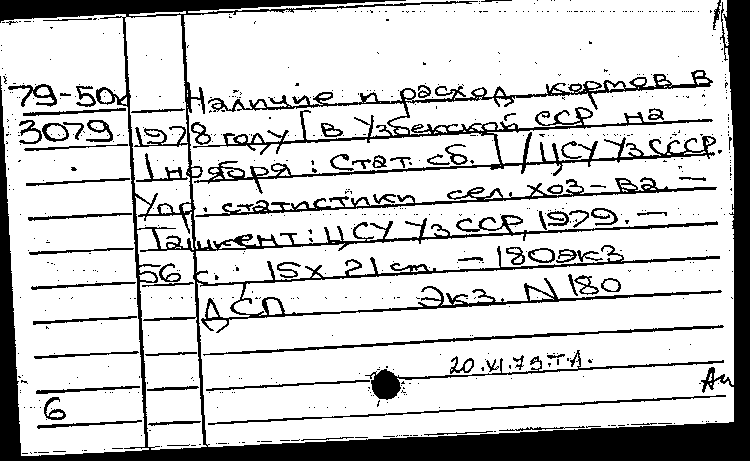 79-50к Наличие и расход кормов в
3079 1978 году [в Узбекской ССР на
1 ноября: Стат. сб.] / ЦСУ УзССР.
Упр. статистики сел. хоз-ва. —
Ташкент: ЦСУ УзССР, 1979. —
56 с.; 15х21 см. — 180 экз
ДСП. Экз. N 180
20.XI.79.Т.А.
6